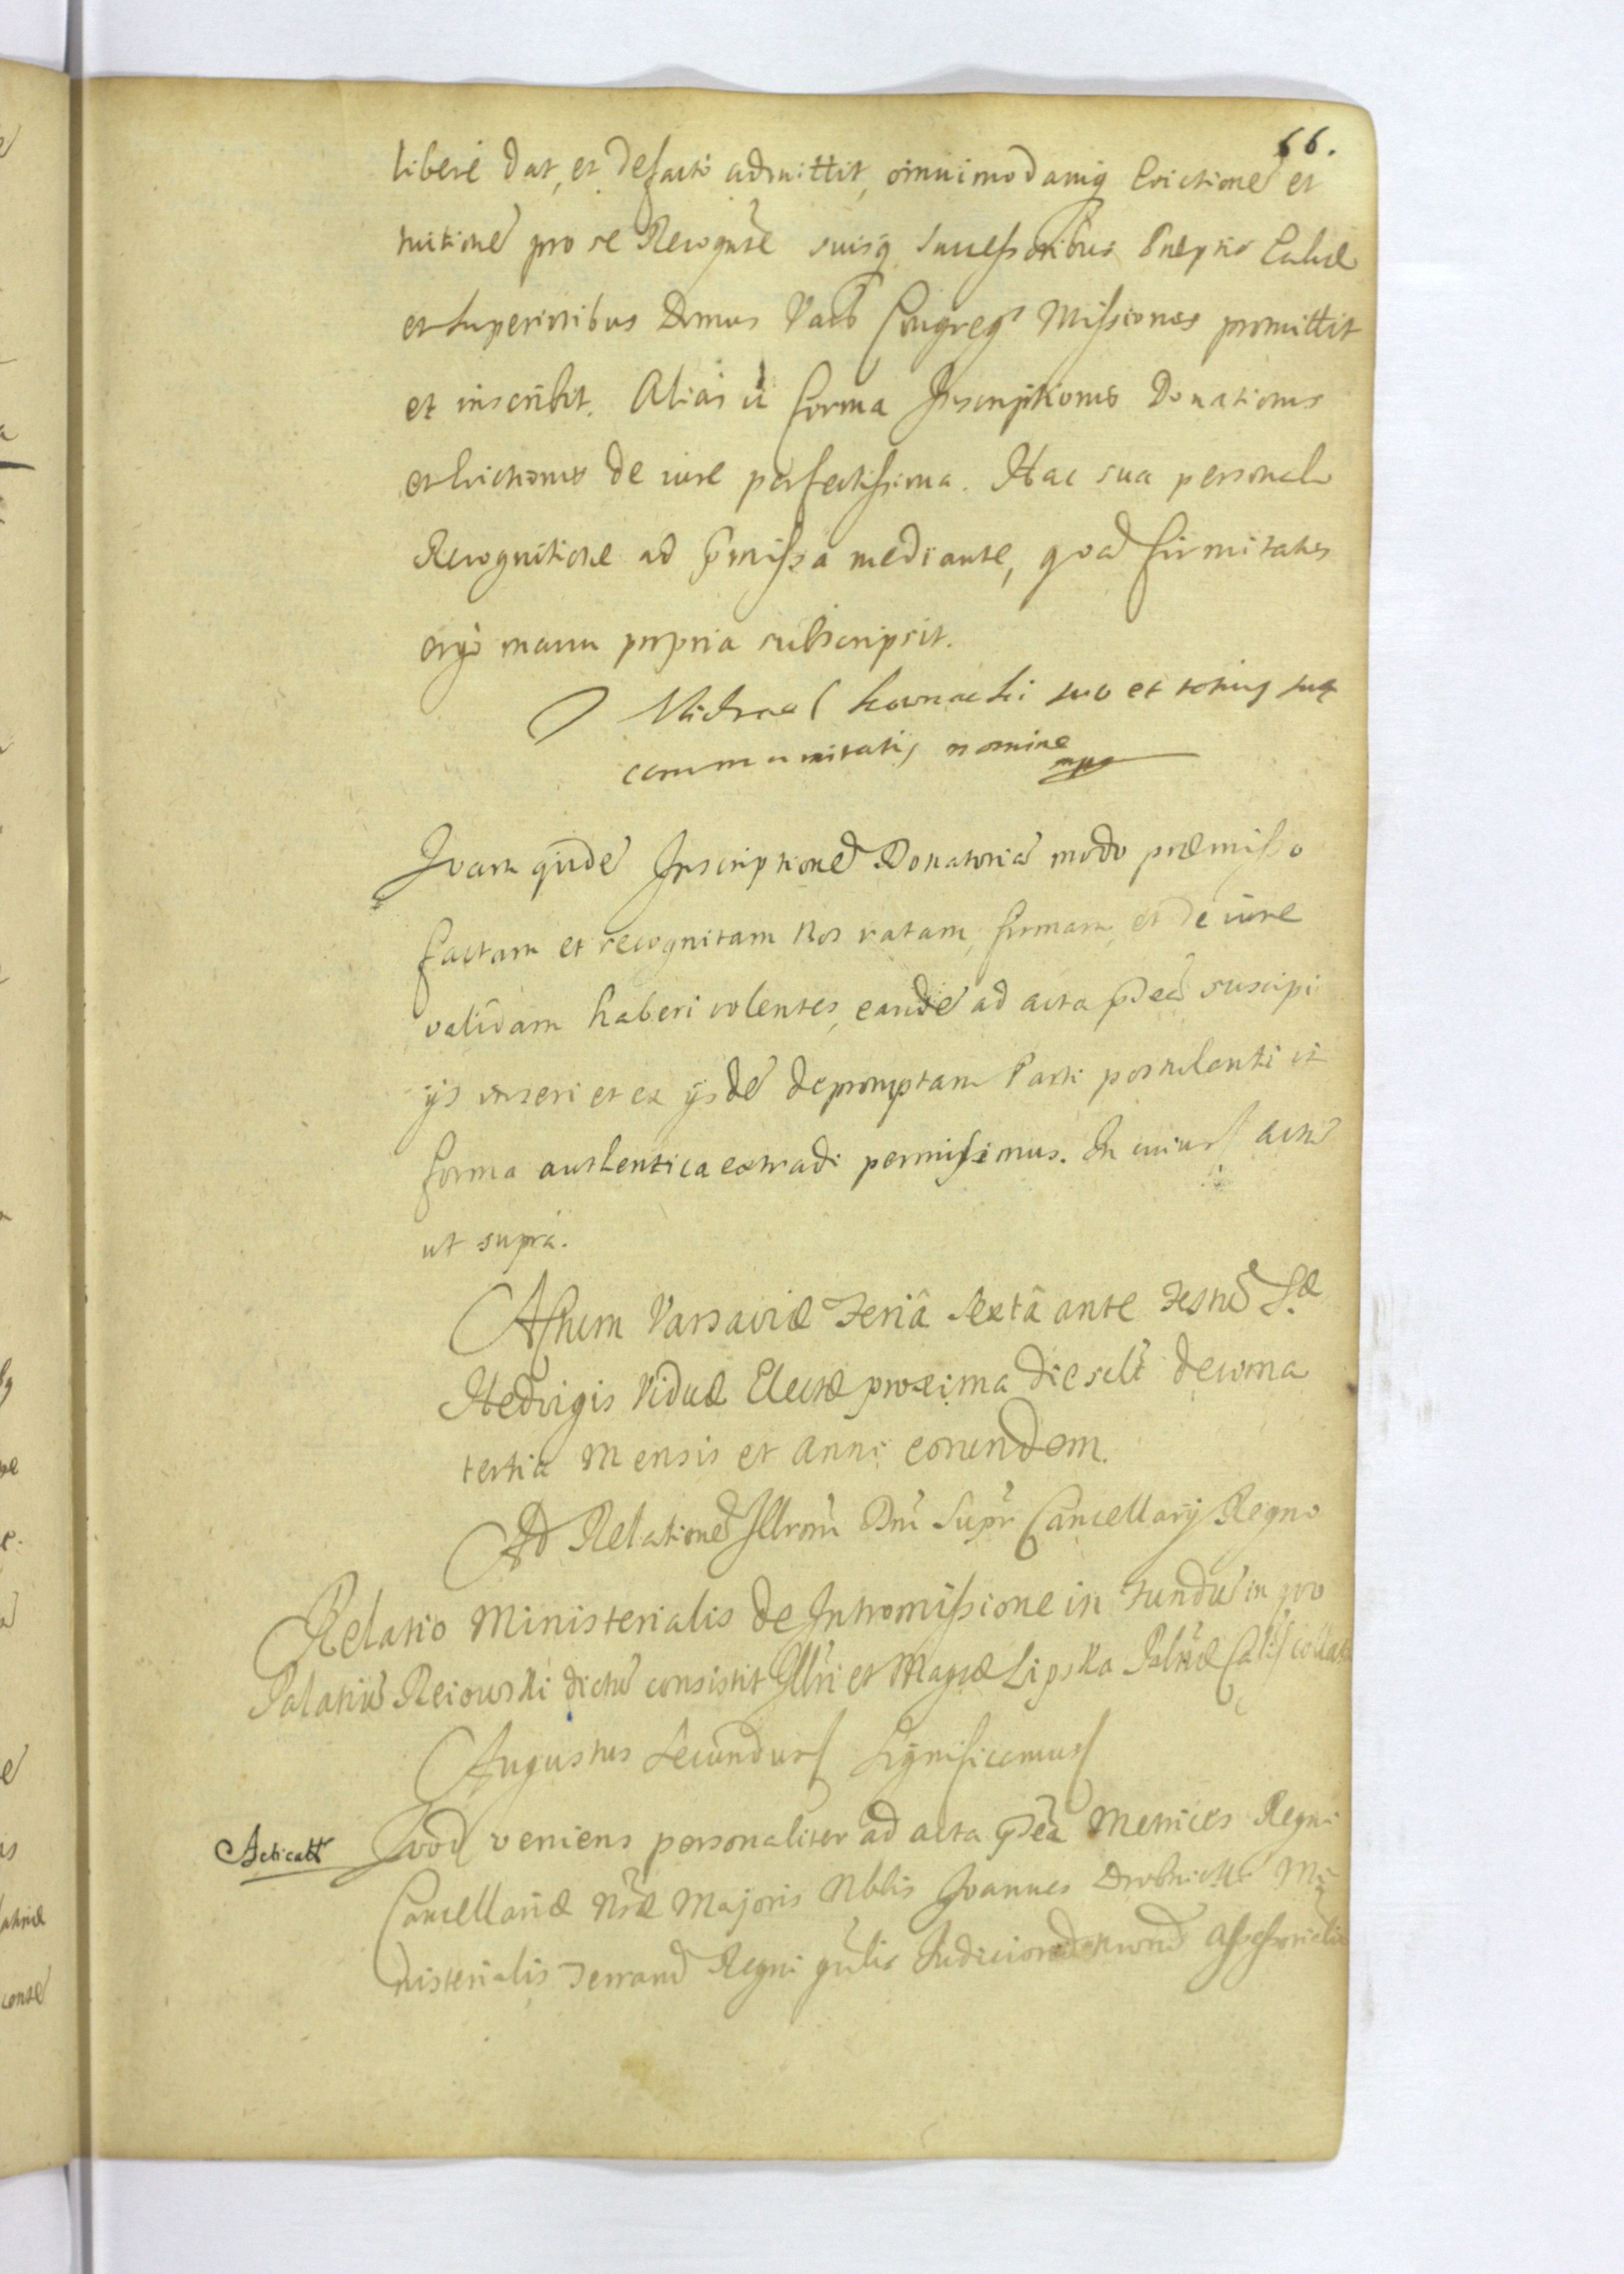 66.
libere dat, et defacto admittit, omnimodamq̃ Evictionẽ et
tuitionẽ pro se Recognĩte suisq̃ Successoribus
et Superioribus Domus Vars Congregt̃ Missiones promittit
et inscribit. Alias ĩ forma Inscriptionis Donationis
et Evictionis de iure perfectissima. Hac sua personali
Recognitione ad p̃missa mediante, quã firmitatis
ergò manu propria subscripsit.
Michael suo et totius suę
communitatis nomine mpp
Quam quidẽ Inscriptionẽ Donatoriã modo præmisso
factam et recognitam Nos ratam, firmam, et de iure
validam haberi volentes, eandẽ ad acta p̃ñtĩã suscipi
ijs inseri et ex ijsdẽ depromptam Parti postulanti ĩ
forma authentica extradi permisimus. In cuius actũ
ut supra.
Actum Varsaviæ Feriâ Sextâ ante Festũ S.æ
Hedvigis Viduæ Electæ proxima die sclt̃ decima
tertia Mensis et Anni eorundem.
Ad Relationẽ Illrõm Dnĩ Supr̃ Cancellarij Regno
Relatio Ministerialis de Intromissione in Fundũ in quo
Palatiũ Reiowski dictũ consistit Illr̃i et Magcæ Lipska Palnæ Calis collat
Augustus Secundus Significamus
Acticatt Quod veniens personaliter ad acta p̃ñtĩã Metrices Regni
Cancellariæ Nræ Majoris Nblis Joannes Mi
nisterialis Terrarũ Regni gñlis Judiciorũ Assessorialiũ